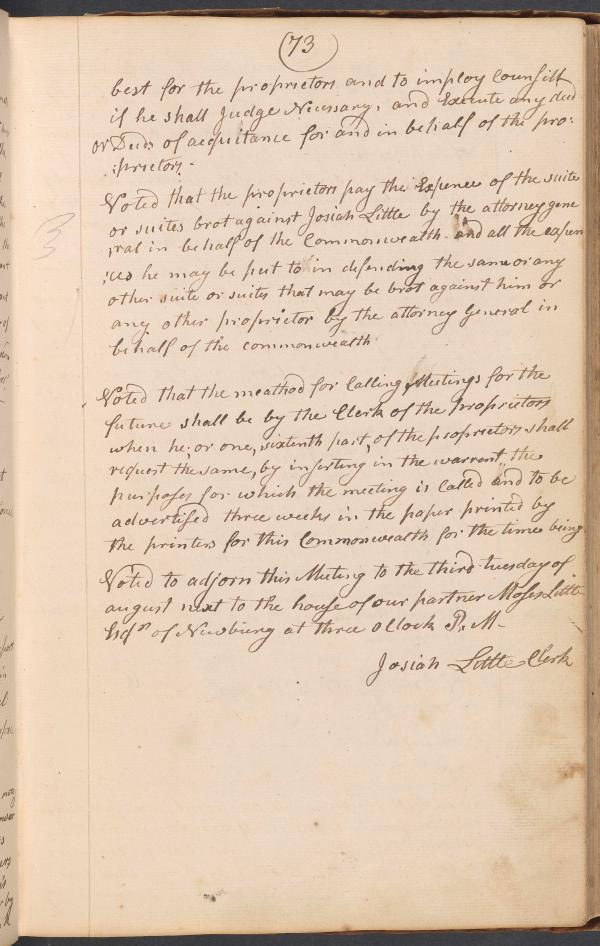 73
best for the proprietors and to imploy Counsill
if he shall Judge Necessary, and Execute any deed
or Deeds of acquitance for and in behalf of the pro:
:prietors.
Voted that the proprietors pay the Expence of the suite
or suites brot against Josiah Little by the attorney gene
:ral in behalf of the Commonwealth and all the expen
:ces he may be put to in defending the same or any
other suite or suites that may be brot against him or
any other proprietor by the attorney General in
behalf of the commonwealth
Voted that the meathod for Calling Meetings for the
future shall be by the Clerk of the proprietors
when he, or one, sixtenth part, of the proprietors shall
request the same, by inserting in the warrent, the
purposes for which the meeting is Called and to be
advertised three weeks in the paper printed by
the printers for this Commonwealth for the time being
Voted to adjorn this Meeting to the third tuesday of
august next to the house of our partner Moses Little
Esqr of Newburg at three oClock P. M.
Josiah Little Clerk